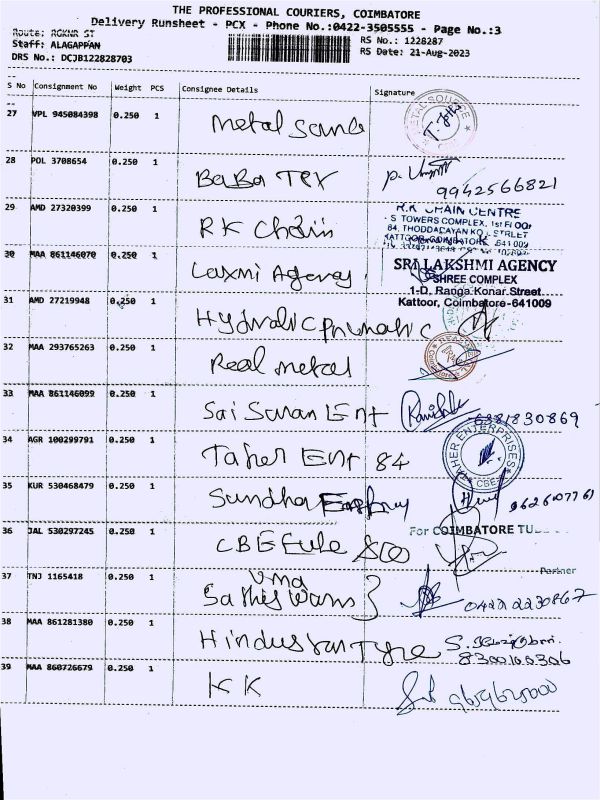 THE PROFESSIONAL COURIERS, COIMBATORE
Delivery Runsheet - PCX - Phone No.:0422-3505555 - Page No.:3
Route: RGKNR ST
RS No.: 1228287
Staff: ALAGAPPAN
RS Date: 21-Aug-2023
DRS No.: DCJB122828703
S No Consignment No Weight PCS Consignee Details Signature
27 VPL 945084398 0.250 1 Metal
28 POL 3708654 0.250 1 BaBa Tex
9942566821
29 AMD 27320399 0.250 1 RK Chain
R.K CHAIN CENTRE
S TOWERS COMPLEX, 1st Floor
84, THODDARAYAN KOIL STREET
KATTOOR, COIMBATORE - 641 009
30 MAA 861146070 0.250 1 Laxmi Agency
SRI LAKSHMI AGENCY
SHREE COMPLEX
1-D, Ranga Konar Street
Kattoor, Coimbatore-641009
31 AMD 27219948 0.250 1
32 MAA 293765263 0.250 1 Real metal
33 MAA 861146099 0.250 1 Sai Saran Ent
6381830869
34 AGR 100299791 0.250 1 Taher Ent 84
TAHER ENTERPRISES
CBE
35 KUR 530468479 0.250 1
36 JAL 530297245 0.250 1 CBE Tube & Co
For COIMBATORE TU
Partner
37 TNJ 1165418 0.250 1 Uma
0422 2230867
38 MAA 861281380 0.250 1 Hindustan Tyre
8300100306
39 MAA 860726679 0.250 1 KK